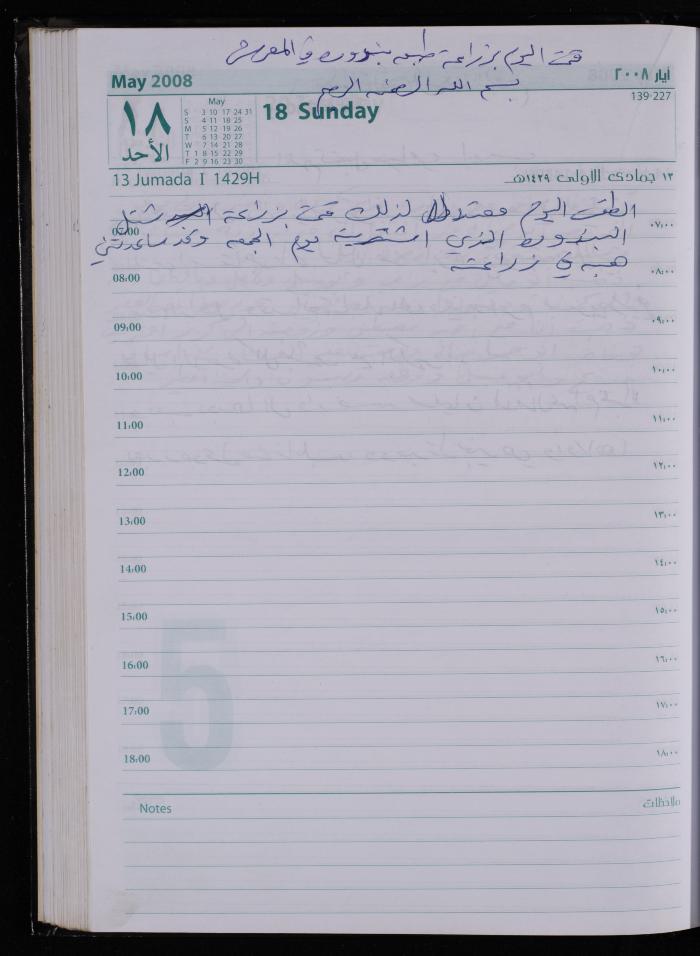 قمت اليوم بزراعة طبعه بندوره في المعرش
May 2008
أيار ٢٠٠٨
بسم الله الرحمن الرحيم
139-227
١٨
الأحد
May
S 3 10 17 24 31
S 4 11 18 25
M 5 12 19 26
T 6 13 20 27
W 7 14 21 28
T 1 8 15 22 29
F 2 9 16 23 30
18 Sunday
13 Jumada I 1429H
١٣ جمادى الاولى ١٤٢٩هـ
الطقس اليوم معتدل لذلك قمت بزراعة شتل
07:00 ٠٧:٠٠
البندوره الذي اشتريته يوم الجمعه وقد ساعدتني
هبه في زراعته
08:00 ٠٨:٠٠
09:00 ٠٩:٠٠
10:00 ١٠:٠٠
11:00 ١١:٠٠
12:00 ١٢:٠٠
13:00 ١٣:٠٠
14:00 ١٤:٠٠
15:00 ١٥:٠٠
16:00 ١٦:٠٠
17:00 ١٧:٠٠
18:00 ١٨:٠٠
5
Notes ملاحظات